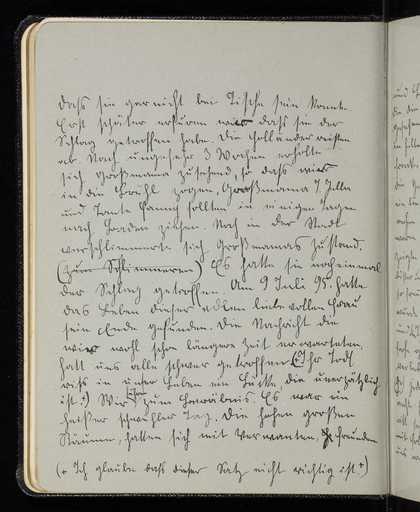 dass sie gar nicht bei Tische sein konnte.
Erst später erfuren wir dass sie der
Schlag getroffen habe. Die Holländer reisten
ab. Nach ungefehr 3 Wochen erholte
sich Grossmama zusehend, so dass wir
in die Brühl zogen, Grossmama, Jella
und Tante Fanny sollten in einigen Tagen
nach Baaden ziehen. Noch in der Stadt
verschlimmerte sich Grossmamas Zustand.
(zum Schlimmeren) Es hatte sie noch einmal
der Schlag getroffen. Am 9 Juli 95. hatte
das Leben dieser edlen liebevollen Frau
sein Ende gefunden. Die Nachricht die
wir wohl schon längere Zeit erwarteten,
hatt uns alle schwer getroffen. (+ Ihr Tod
riss in unser Leben ein Lücke, die unersätzlich
ist.+) Wir fuhren zum Begräbnis. Es war ein
heisser schwühler Tag. Die hohen grossen
Räume, hatten sich mit Verwanten, Freunden
(+ Ich glaube dass dieser Satz nicht richtig ist.+)